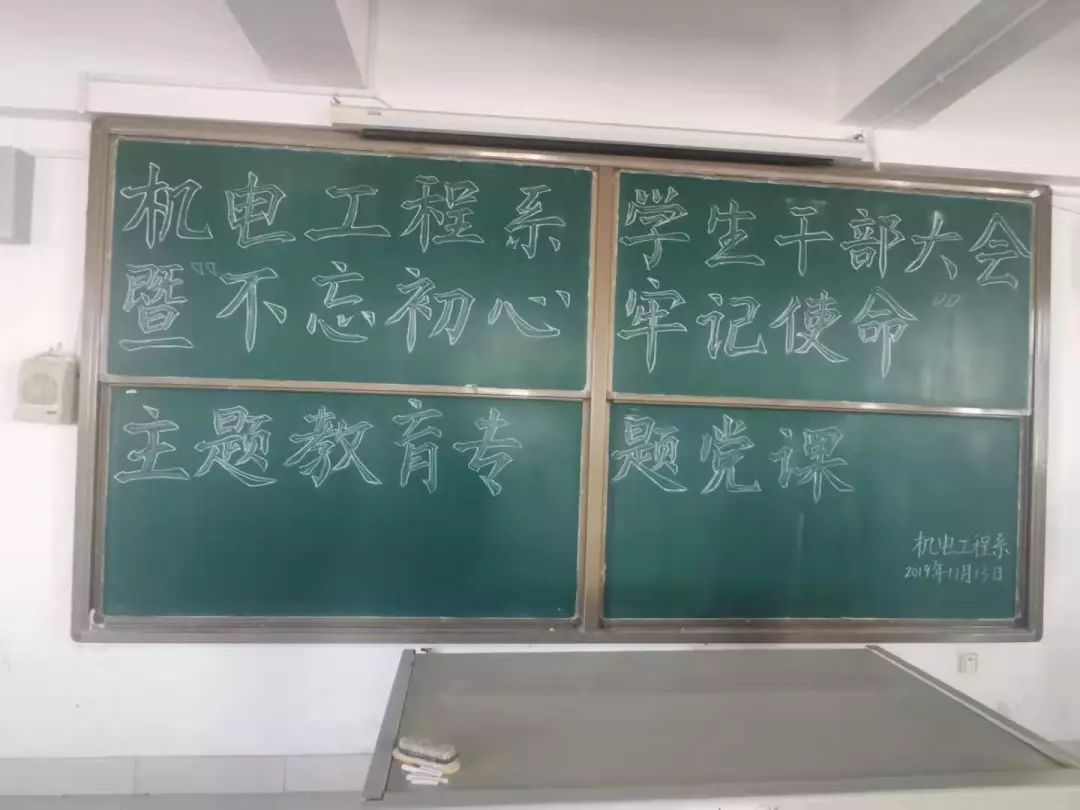 机电工程系学生干部大会
暨"不忘初心牢记使命"
主题教育专题党课
机电工程系
2019年11月13日